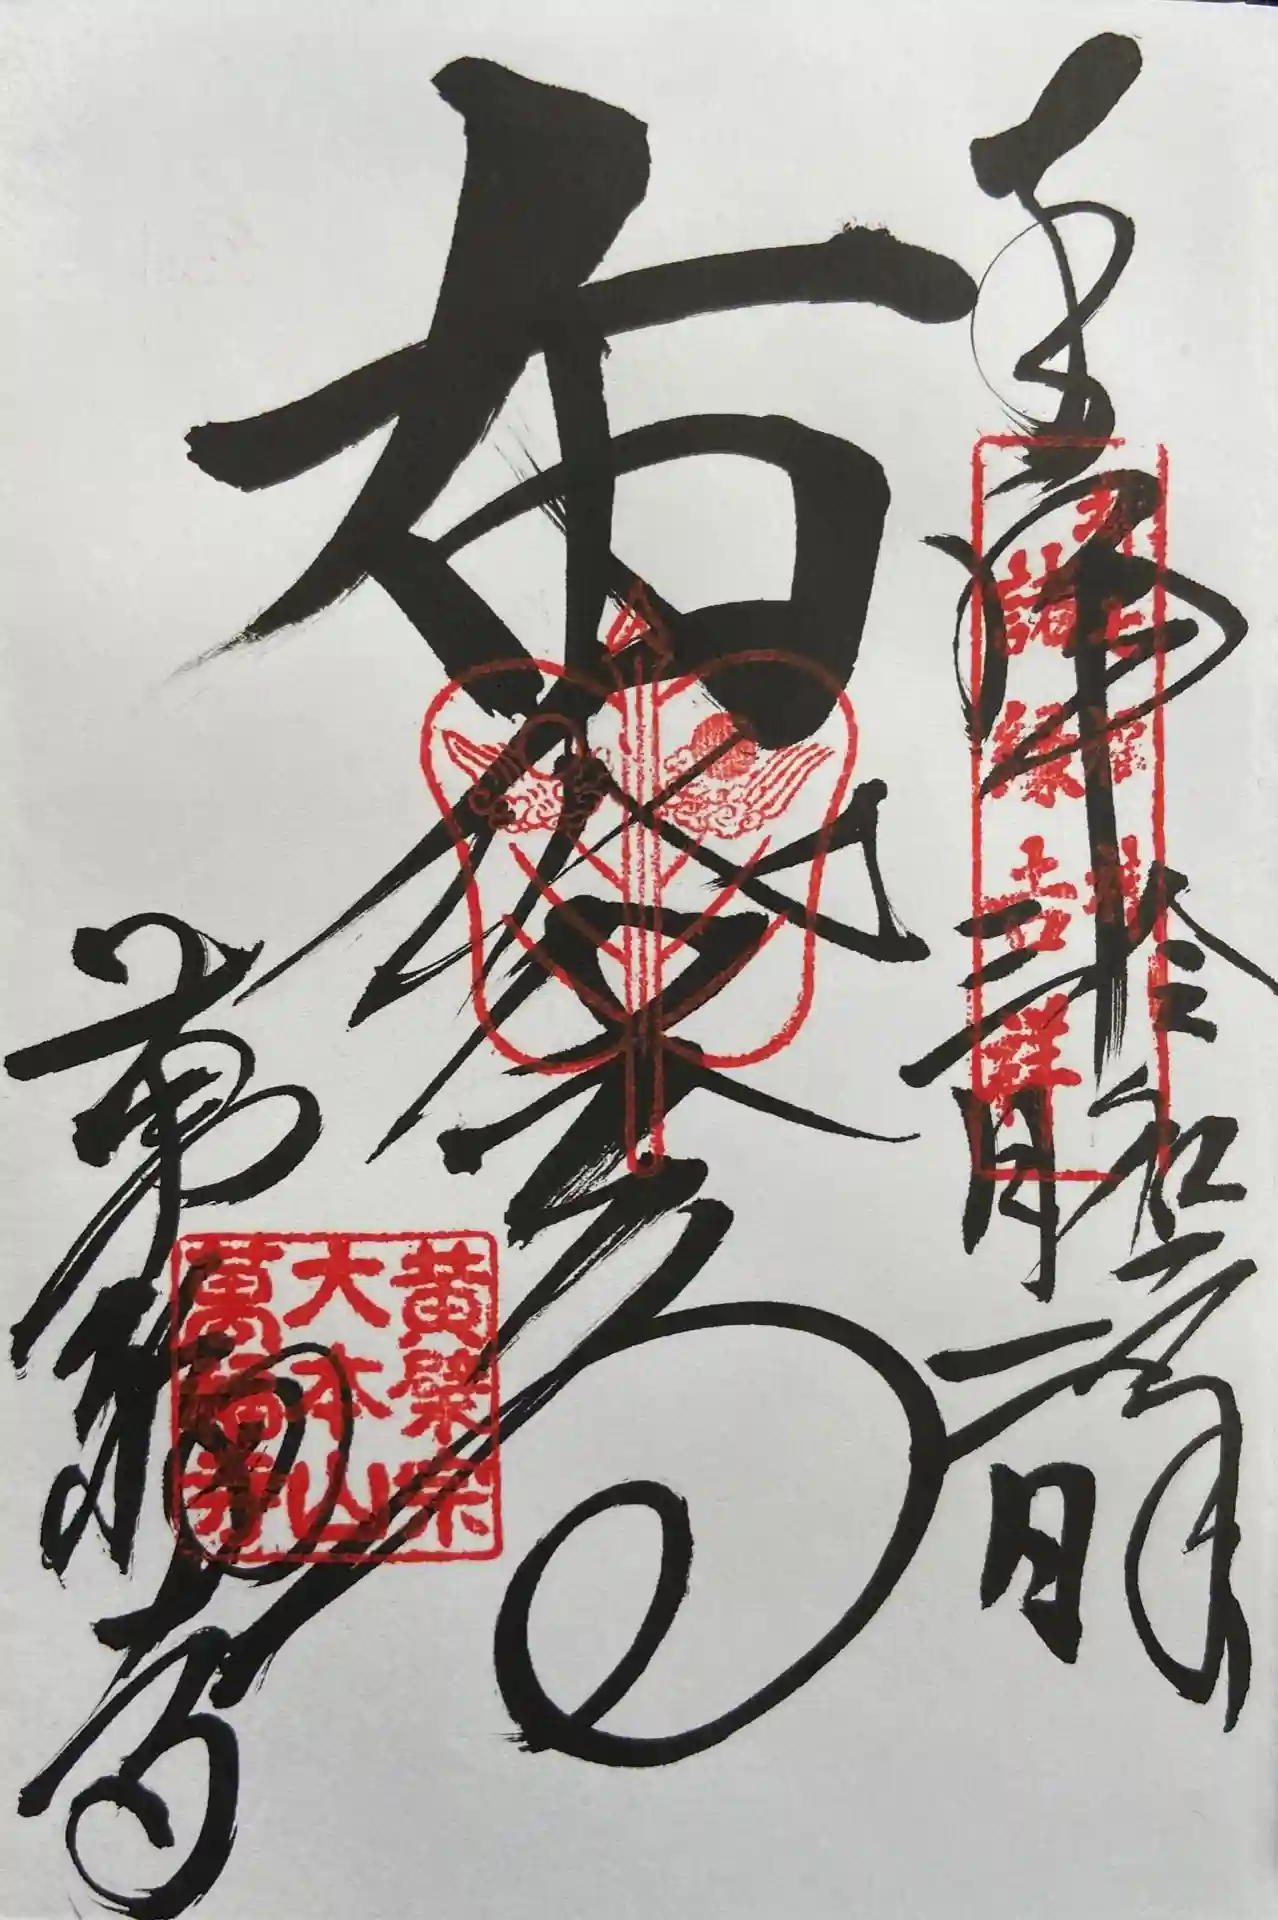 奉拝
令和
三月
日
諸縁吉祥
布袋尊
萬福寺
黄檗宗
大本山
萬福寺